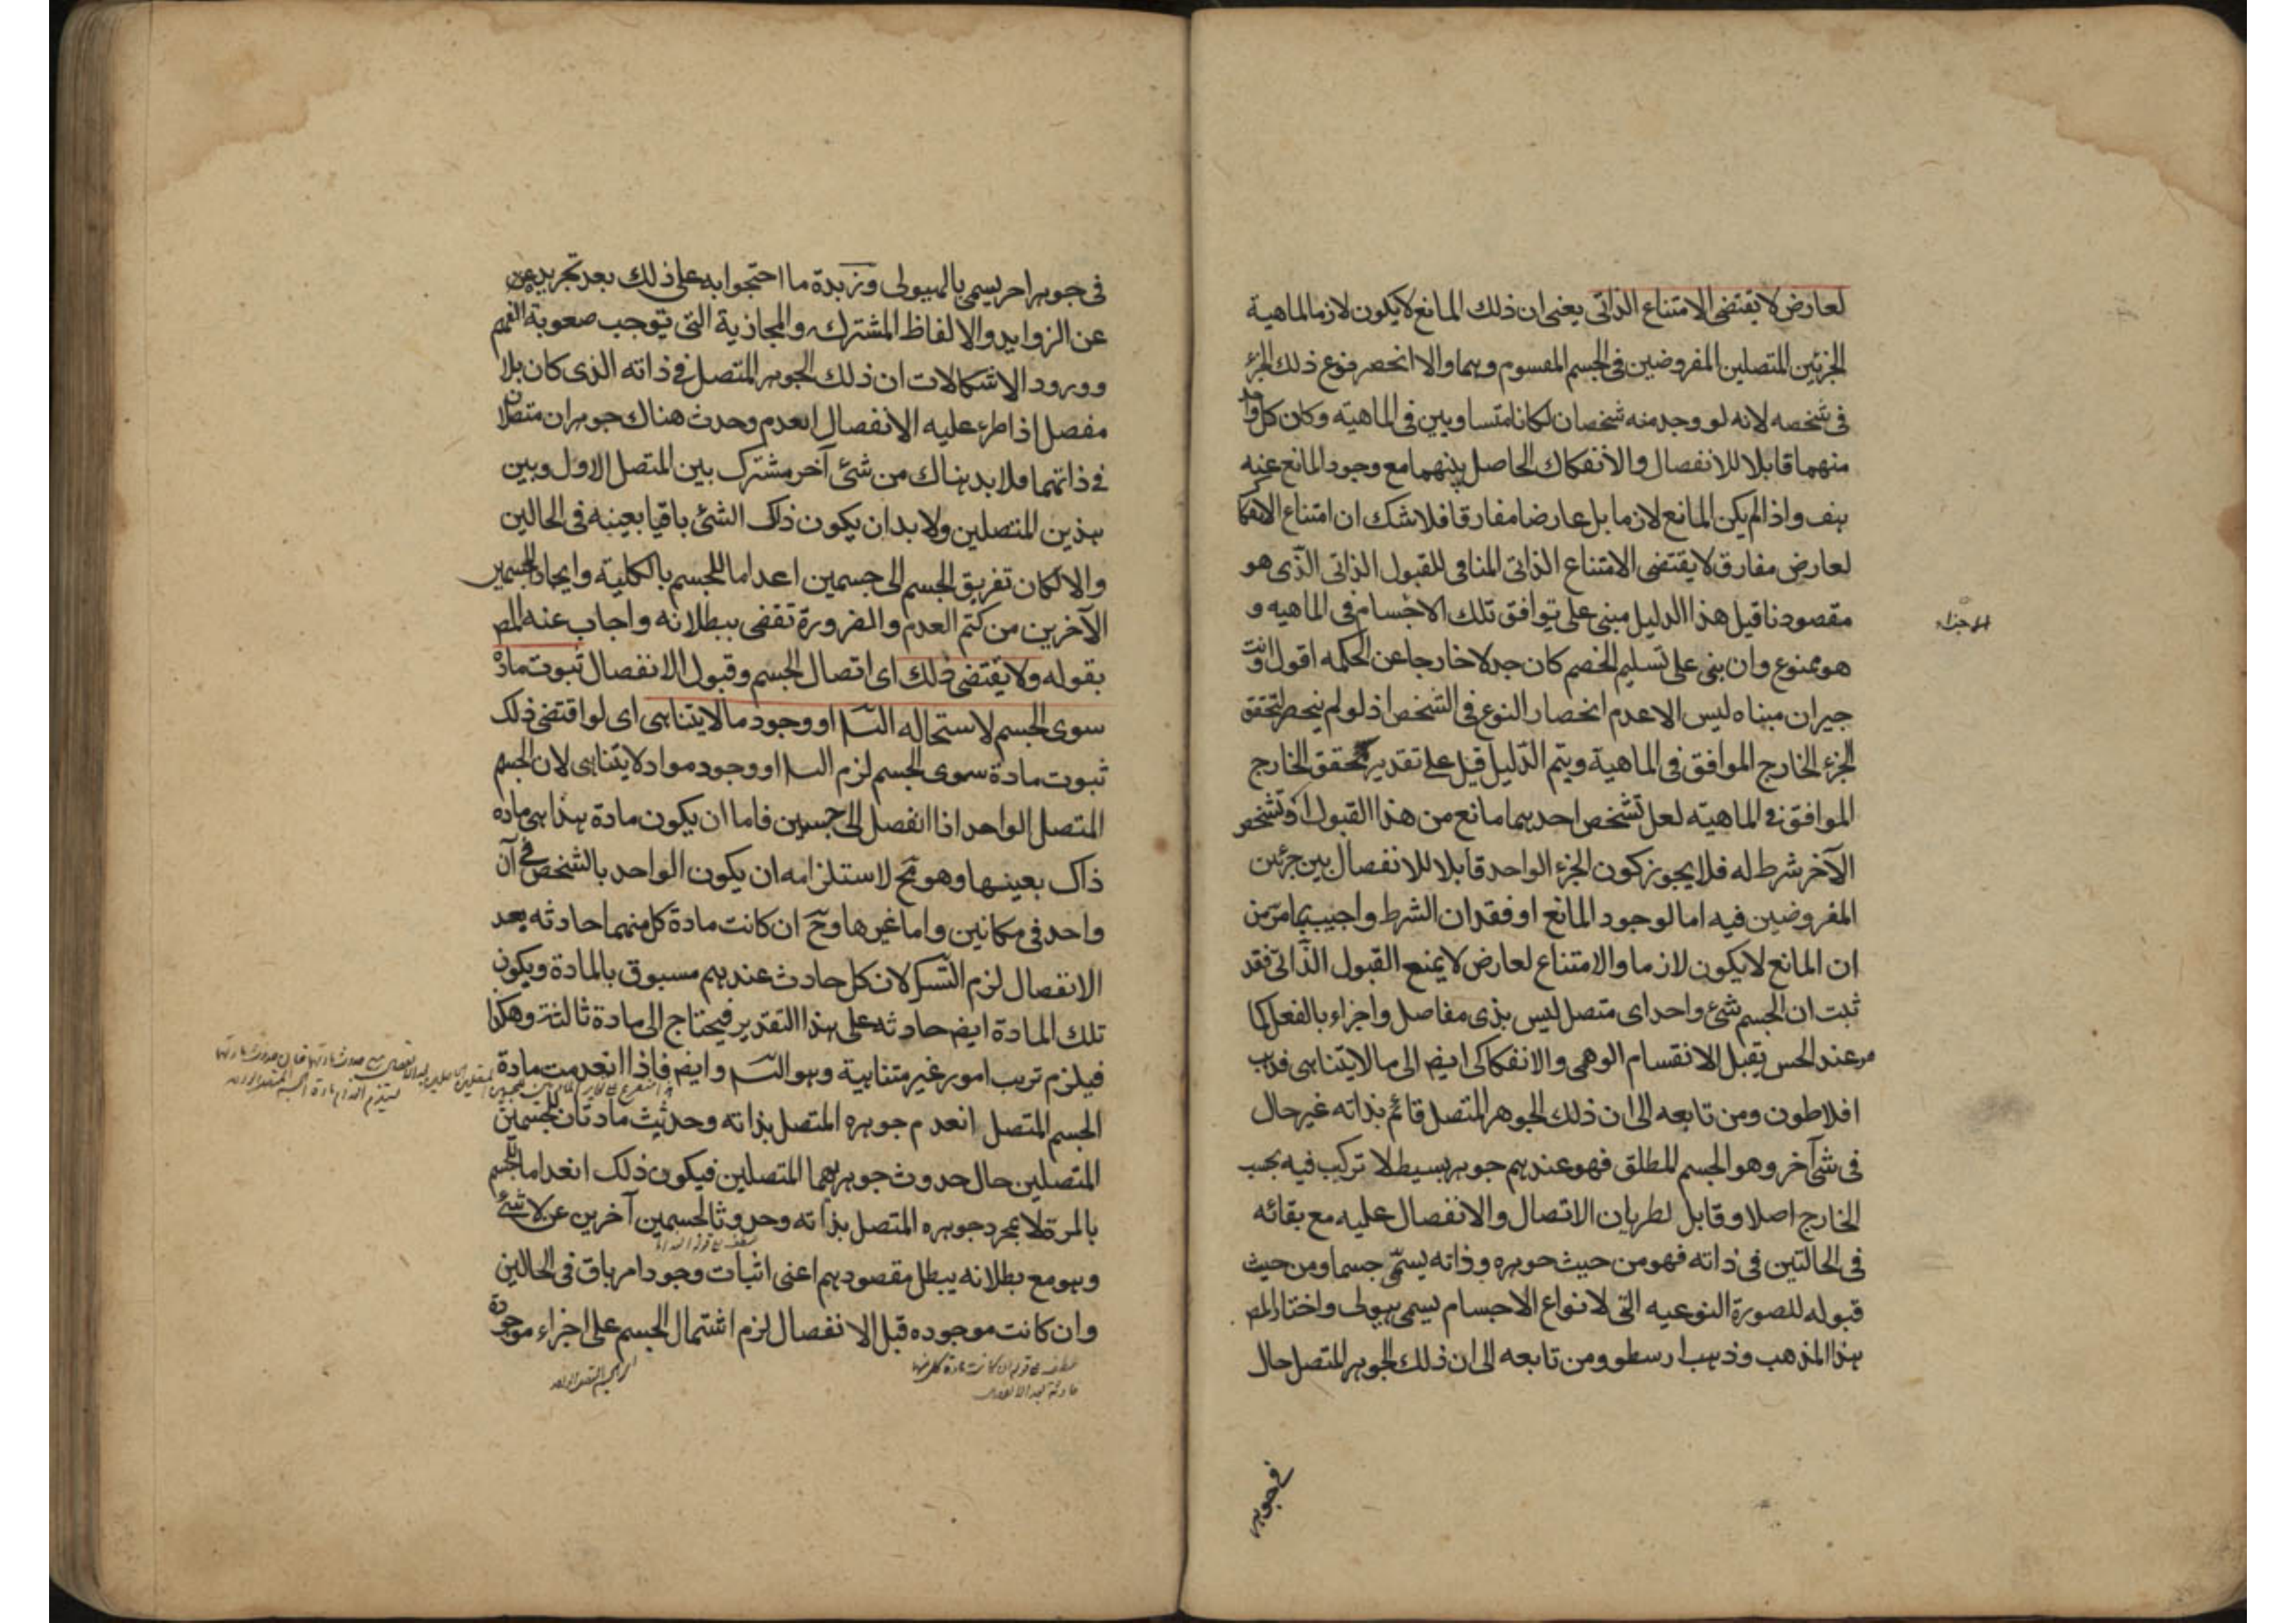 لعارض لا يقتضى الامتناع الذاتى يعنى ان ذلك المانع لا يكون لازما لماهية
الجزئين المتصلين المفروضين فى الجسم المقسوم وهما والا انحصر نوع ذلك الجزء
فى شخصه لانه لو وجد منه شخصان لكانا متساويين فى الماهية وكان كل واحد
منهما قابلا للانفصال والانفكاك الحاصل بينهما مع وجود المانع عنه
هف واذا لم يكن المانع لازما بل عارضا مفارقا فلا شك ان امتناع الانفكاك
لعارض مفارق لا يقتضى الامتناع الذاتى المنافى للقبول الذاتى الذى هو
مقصودنا قيل هذا الدليل مبنى على توافق تلك الاجسام فى الماهيه و
الاجزاء
هو ممنوع وان بنى على تسليم الخصم كان جدلا خارجا عن الحكمه اقول وانت
خبير ان مبناه ليس الا عدم انحصار النوع فى الشخص اذ لو لم ينحصر لتحقق
الجزء الخارج الموافق فى الماهية ويتم الدليل قيل على تقدير تحقق الخارج
الموافق فى الماهيه لعل تشخص احدهما مانع من هذا القبول او تشخص
الآخر شرط له فلا يجوز كون الجزء الواحد قابلا للانفصال بين جزئين
المفروضين فيه اما لوجود المانع او فقدان الشرط واجيب بما مر من
ان المانع لا يكون لازما والامتناع لعارض لا يمنع القبول الذاتى فقد
ثبت ان الجسم شئ واحد اى متصل ليس بذى مفاصل واجزاء بالفعل كما
هو عند الحس يقبل الانقسام الوهمى والانفكاكى ايض الى ما لا يتناهى فذهب
افلاطون ومن تابعه الى ان ذلك الجوهر المتصل قائم بذاته غير حال
فى شئ آخر وهو الجسم المطلق فهو عندهم جوهر بسيط لا تركيب فيه بحسب
الخارج اصلا وقابل لطريان الاتصال والانفصال عليه مع بقائه
فى الحالتين فى ذاته فهو من حيث جوهره وذاته يسمى جسما ومن حيث
قبوله للصورة النوعيه التى لانواع الاجسام يسمى هيولى واختار المص
هذا المذهب وذهب ارسطو ومن تابعه الى ان ذلك الجوهر المتصل حال
فى جوهر
فى جوهر اخر يسمى بالهيولى وزبدة ما احتجوا به على ذلك بعد تجريده عن
عن الزوايد والالفاظ المشتركه والمجازية التى توجب صعوبة الفهم
وورود الاشكالات ان ذلك الجوهر المتصل فى ذاته الذى كان بلا
مفصل اذا طرء عليه الانفصال انعدم وحدث هناك جوهران متصلان
فى ذاتهما فلا بد هناك من شئ آخر مشترك بين المتصل الاول وبين
هذين المتصلين ولا بد ان يكون ذلك الشئ باقيا بعينه فى الحالين
والا لكان تفريق الجسم الى جسمين اعداما للجسم بالكلية وايجادا لجسمين
الآخرين من كتم العدم والضرورة تقضى ببطلانه واجاب عنه المص
بقوله ولا يقتضى ذلك اى اتصال الجسم وقبول الانفصال ثبوت مادة
سوى الجسم لاستحاله التسـ او وجود ما لا يتناهى اى لو اقتضى ذلك
ثبوت مادة سوى الجسم لزم التسـ او وجود مواد لا يتناهى لان الجسم
المتصل الواحد اذا انفصل الى جسمين فاما ان يكون مادة هذا هى ماده
ذاك بعينها وهو مح لاستلزامه ان يكون الواحد بالشخص فى آن
واحد فى مكانين واما غيرها وح ان كانت مادة كل منهما حادثه بعد
الانفصال لزم التسـ لان كل حادث عندهم مسبوق بالمادة ويكون
تلك المادة ايض حادثه على هذا التقدير فيحتاج الى مادة ثالثة وهكذا
فيلزم ترتب امور غير متناهية وهو التسـ وايض فاذا انعدمت مادة
الجسم المتصل انعدم جوهره المتصل بذاته وحدثت مادتان للجسمين
المتصلين حال حدوث جوهريهما المتصلين فيكون ذلك انعداما للجسم
بالمرة لا بمجرد جوهره المتصل بذاته وحدوثا لجسمين آخرين عن لا شئ
وهو مع بطلانه يبطل مقصودهم اعنى اثبات وجود امر باق فى الحالين
وان كانت موجوده قبل الانفصال لزم اشتمال الجسم على اجزاء موجودة
عطف على قوله ان كانت مادة كل منهما
حادثة بعد الانفصال
اى الجسم المتصل الواحد